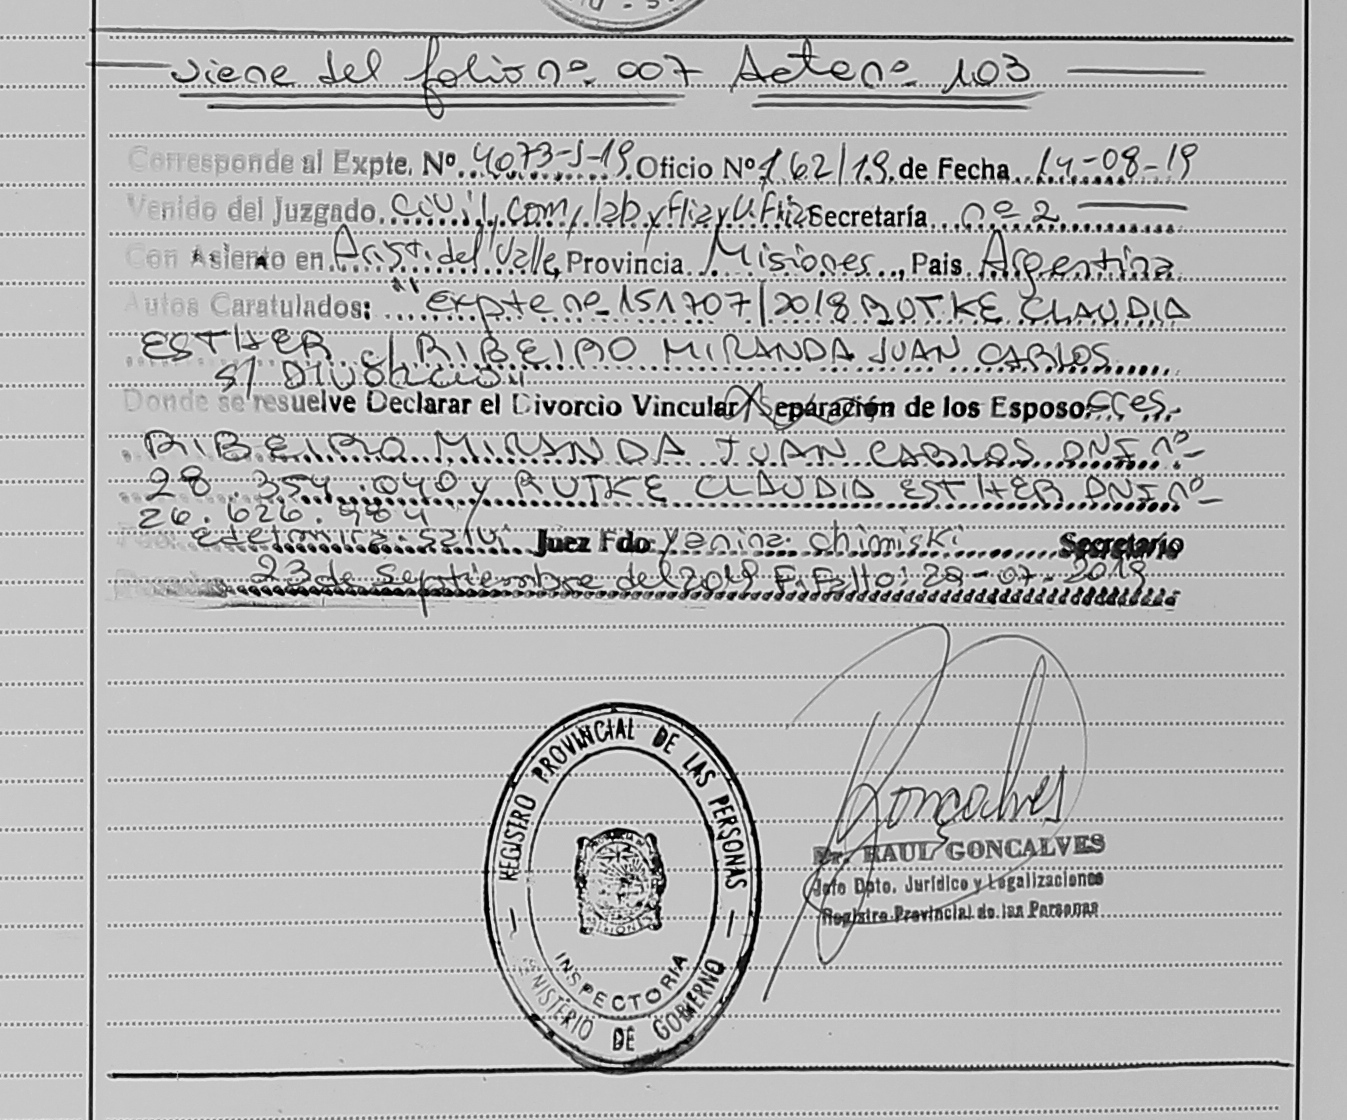 viene del folio nº 007 Acta nº 103
Corresponde al Expte. Nº 4073-J-19 Oficio Nº 162/19 de Fecha 14-08-19
Venido del Juzgado Civil, Com, lab y flia y V.Flia Secretaría nº 2
Con Asiento en Arist. del Valle, Provincia Misiones, País Argentina
Autos Caratulados: "expte nº 151707/2018 RUTKE CLAUDIA
ESTHER c/ RIBEIRO MIRANDA JUAN CARLOS
s/ Divorcio"
Donde se resuelve Declarar el Divorcio Vincular Separación de los Esposos
RIBEIRO MIRANDA JUAN CARLOS DNI nº
28.354.040 y RUTKE CLAUDIA ESTHER DNI nº
26.626.984
Juez Fdo: Yenina Chimiski Secretario
Posadas 23 de Septiembre del 2019 F.Fallo: 29-07-2019
REGISTRO PROVINCIAL DE LAS PERSONAS
MISIONES
INSPECTORIA
MINISTERIO DE GOBIERNO
Goncalves
Dr. RAUL GONCALVES
Jefe Dpto. Jurídico y Legalizaciones
Registro Provincial de las Personas